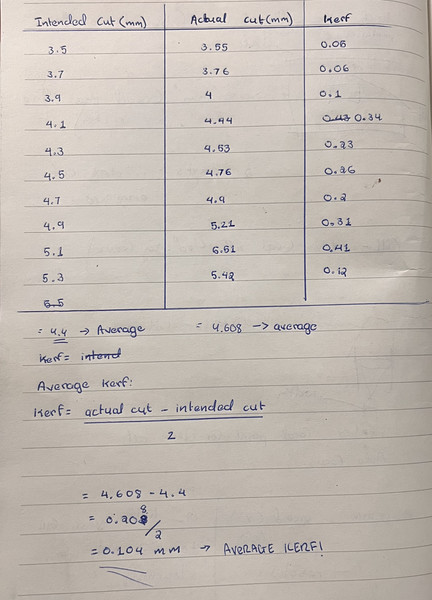 Intended cut (mm) Actual cut (mm) Kerf
3.5 3.55 0.05
3.7 3.76 0.06
3.9 4 0.1
4.1 4.44 0.43 0.34
4.3 4.53 0.23
4.5 4.76 0.26
4.7 4.9 0.2
4.9 5.21 0.31
5.1 5.51 0.41
5.3 5.42 0.12
5.5
= 4.4 → Average = 4.608 → average
Kerf = intend
Average Kerf:
Kerf = actual cut - intended cut
2
= 4.608 - 4.4
= 0.208/2
= 0.104 mm → AVERAGE KERF!